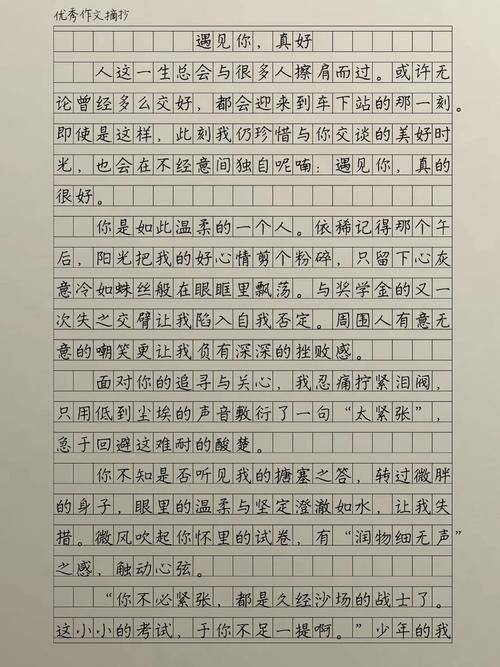 优秀作文摘抄
遇见你，真好
人这一生总会与很多人擦肩而过。或许无
论曾经多么交好，都会迎来到车下站的那一刻。
即使是这样，此刻我仍珍惜与你交谈的美好时
光，也会在不经意间独自呢喃：遇见你，真的
很好。
你是如此温柔的一个人。依稀记得那个午
后，阳光把我的好心情剪个粉碎，只留下心灰
意冷如蛛丝般在眼眶里飘荡。与奖学金的又一
次失之交臂让我陷入自我否定。周围人有意无
意的嘲笑更让我负有深深的挫败感。
面对你的追寻与关心，我忍痛拧紧泪阀，
只用低到尘埃的声音敷衍了一句“太紧张”，
急于回避这难耐的酸楚。
你不知是否听见我的搪塞之答，转过微胖
的身子，眼里的温柔与坚定澄澈如水，让我失
措。微风吹起你怀里的试卷，有“润物细无声”
之感，触动心弦。
“你不必紧张，都是久经沙场的战士了。
这小小的考试，于你不足一提啊。”少年的我